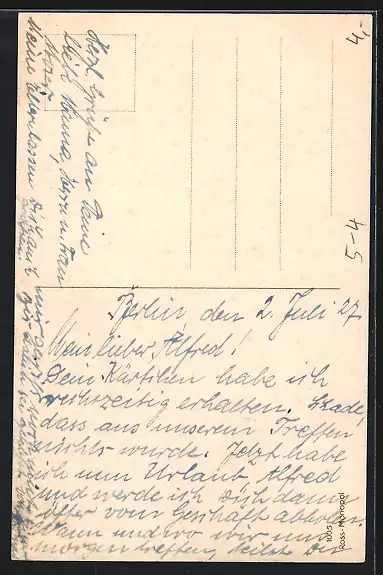 Berlin, den 2. Juli 27
Mein lieber Alfred!
Dein Kärtchen habe ich
rechtzeitig erhalten. Schade,
dass aus unserem Treffen
nichts wurde. Jetzt habe
ich nun Urlaub, Alfred
und werde ich Dich dann
öfter vom Geschäft abholen.
Wann und wo wir uns
morgen treffen, teilst Du
mir
Herzl. Grüße an Deine
Mama, Herrn u. Frau
Meine Eltern lassen Dich auch
grüßen.
4,-
4-5
1095
Ross-Monopol